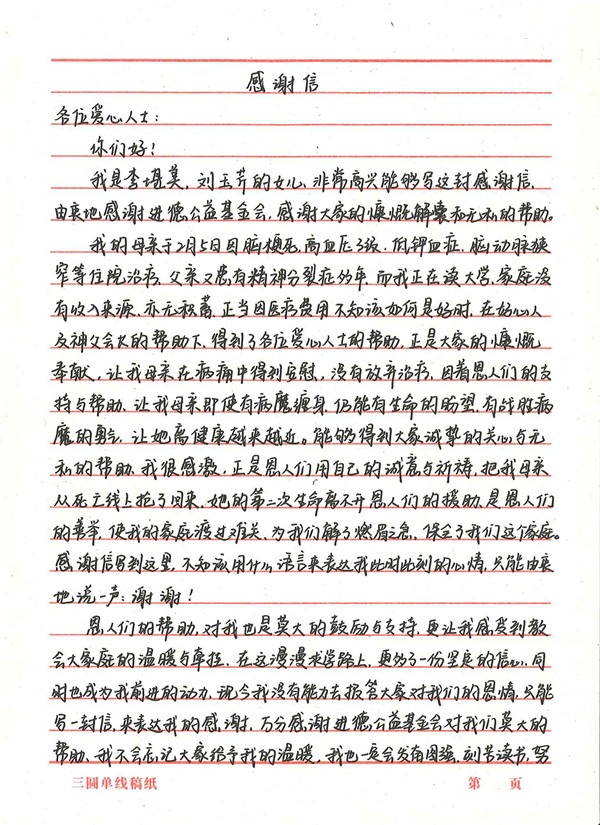 感谢信
各位爱心人士：
你们好！
我是李堪莫，刘玉芹的女儿、非常高兴能够写这封感谢信，
由衷地感谢进德公益基金会，感谢大家的慷慨解囊和无私的帮助。
我的母亲于2月5日因脑梗死，高血压3级、低钾血症，脑动脉狭
窄等住院治病，父亲又患有精神分裂症多年，而我正在读大学，家庭没
有收入来源，亦无积蓄，正当因医疗费用不知该如何是好时，在好心人
及神父会长的帮助下，得到了各位爱心人士的帮助，正是大家的慷慨
奉献，让我母亲在病痛中得到安慰，没有放弃治病，因着恩人们的支
持与帮助、让我母亲即使有病魔缠身，仍能有生命的盼望，有战胜病
魔的勇气，让她离健康越来越近。能够得到大家诚挚的关心与无
私的帮助，我很感激，正是恩人们用自己的诚意与祈祷，把我母亲
从死亡线上抢了回来，她的第二次生命离不开恩人们的援助，是恩人们
的善举，使我的家庭渡过难关，为我们解了燃眉之急，保全了我们这个家庭。
感谢信写到这里，不知该用什么语言来表达我此时此刻的心情，只能由衷
地说一声：谢谢！
恩人们的帮助，对我也是莫大的鼓励与支持，更让我感受到教
会大家庭的温暖与牵挂，在这漫漫求学路上，更多了一份坚定的信心，同
时也成为我前进的动力，现今我没有能力去报答大家对我们的恩情，只能
写一封信，来表达我的感谢，万分感谢进德公益基金会对我们莫大的
帮助、我不会忘记大家给予我的温暖，我也一定会发奋图强，刻苦读书，努
三圆单线稿纸
第 页